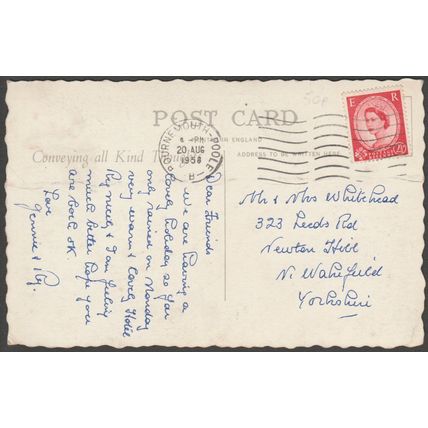 50p
POST CARD
BOURNEMOUTH-POOLE
PM
20 AUG
1958
B
E R
2½D
ENGLAND
Conveying all Kind
ADDRESS TO BE WRITTEN HERE
Dear Friends
We are having a
lovely holiday so far
only rained on Monday
very warm & lovely Hotel
Reg needs & I am feeling
much better hope you
are both OK
Love
Jennie & Reg.
Mr & Mrs Whitehead
323 Leeds Rd
Newton Hill
Nr Wakefield
Yorkshire